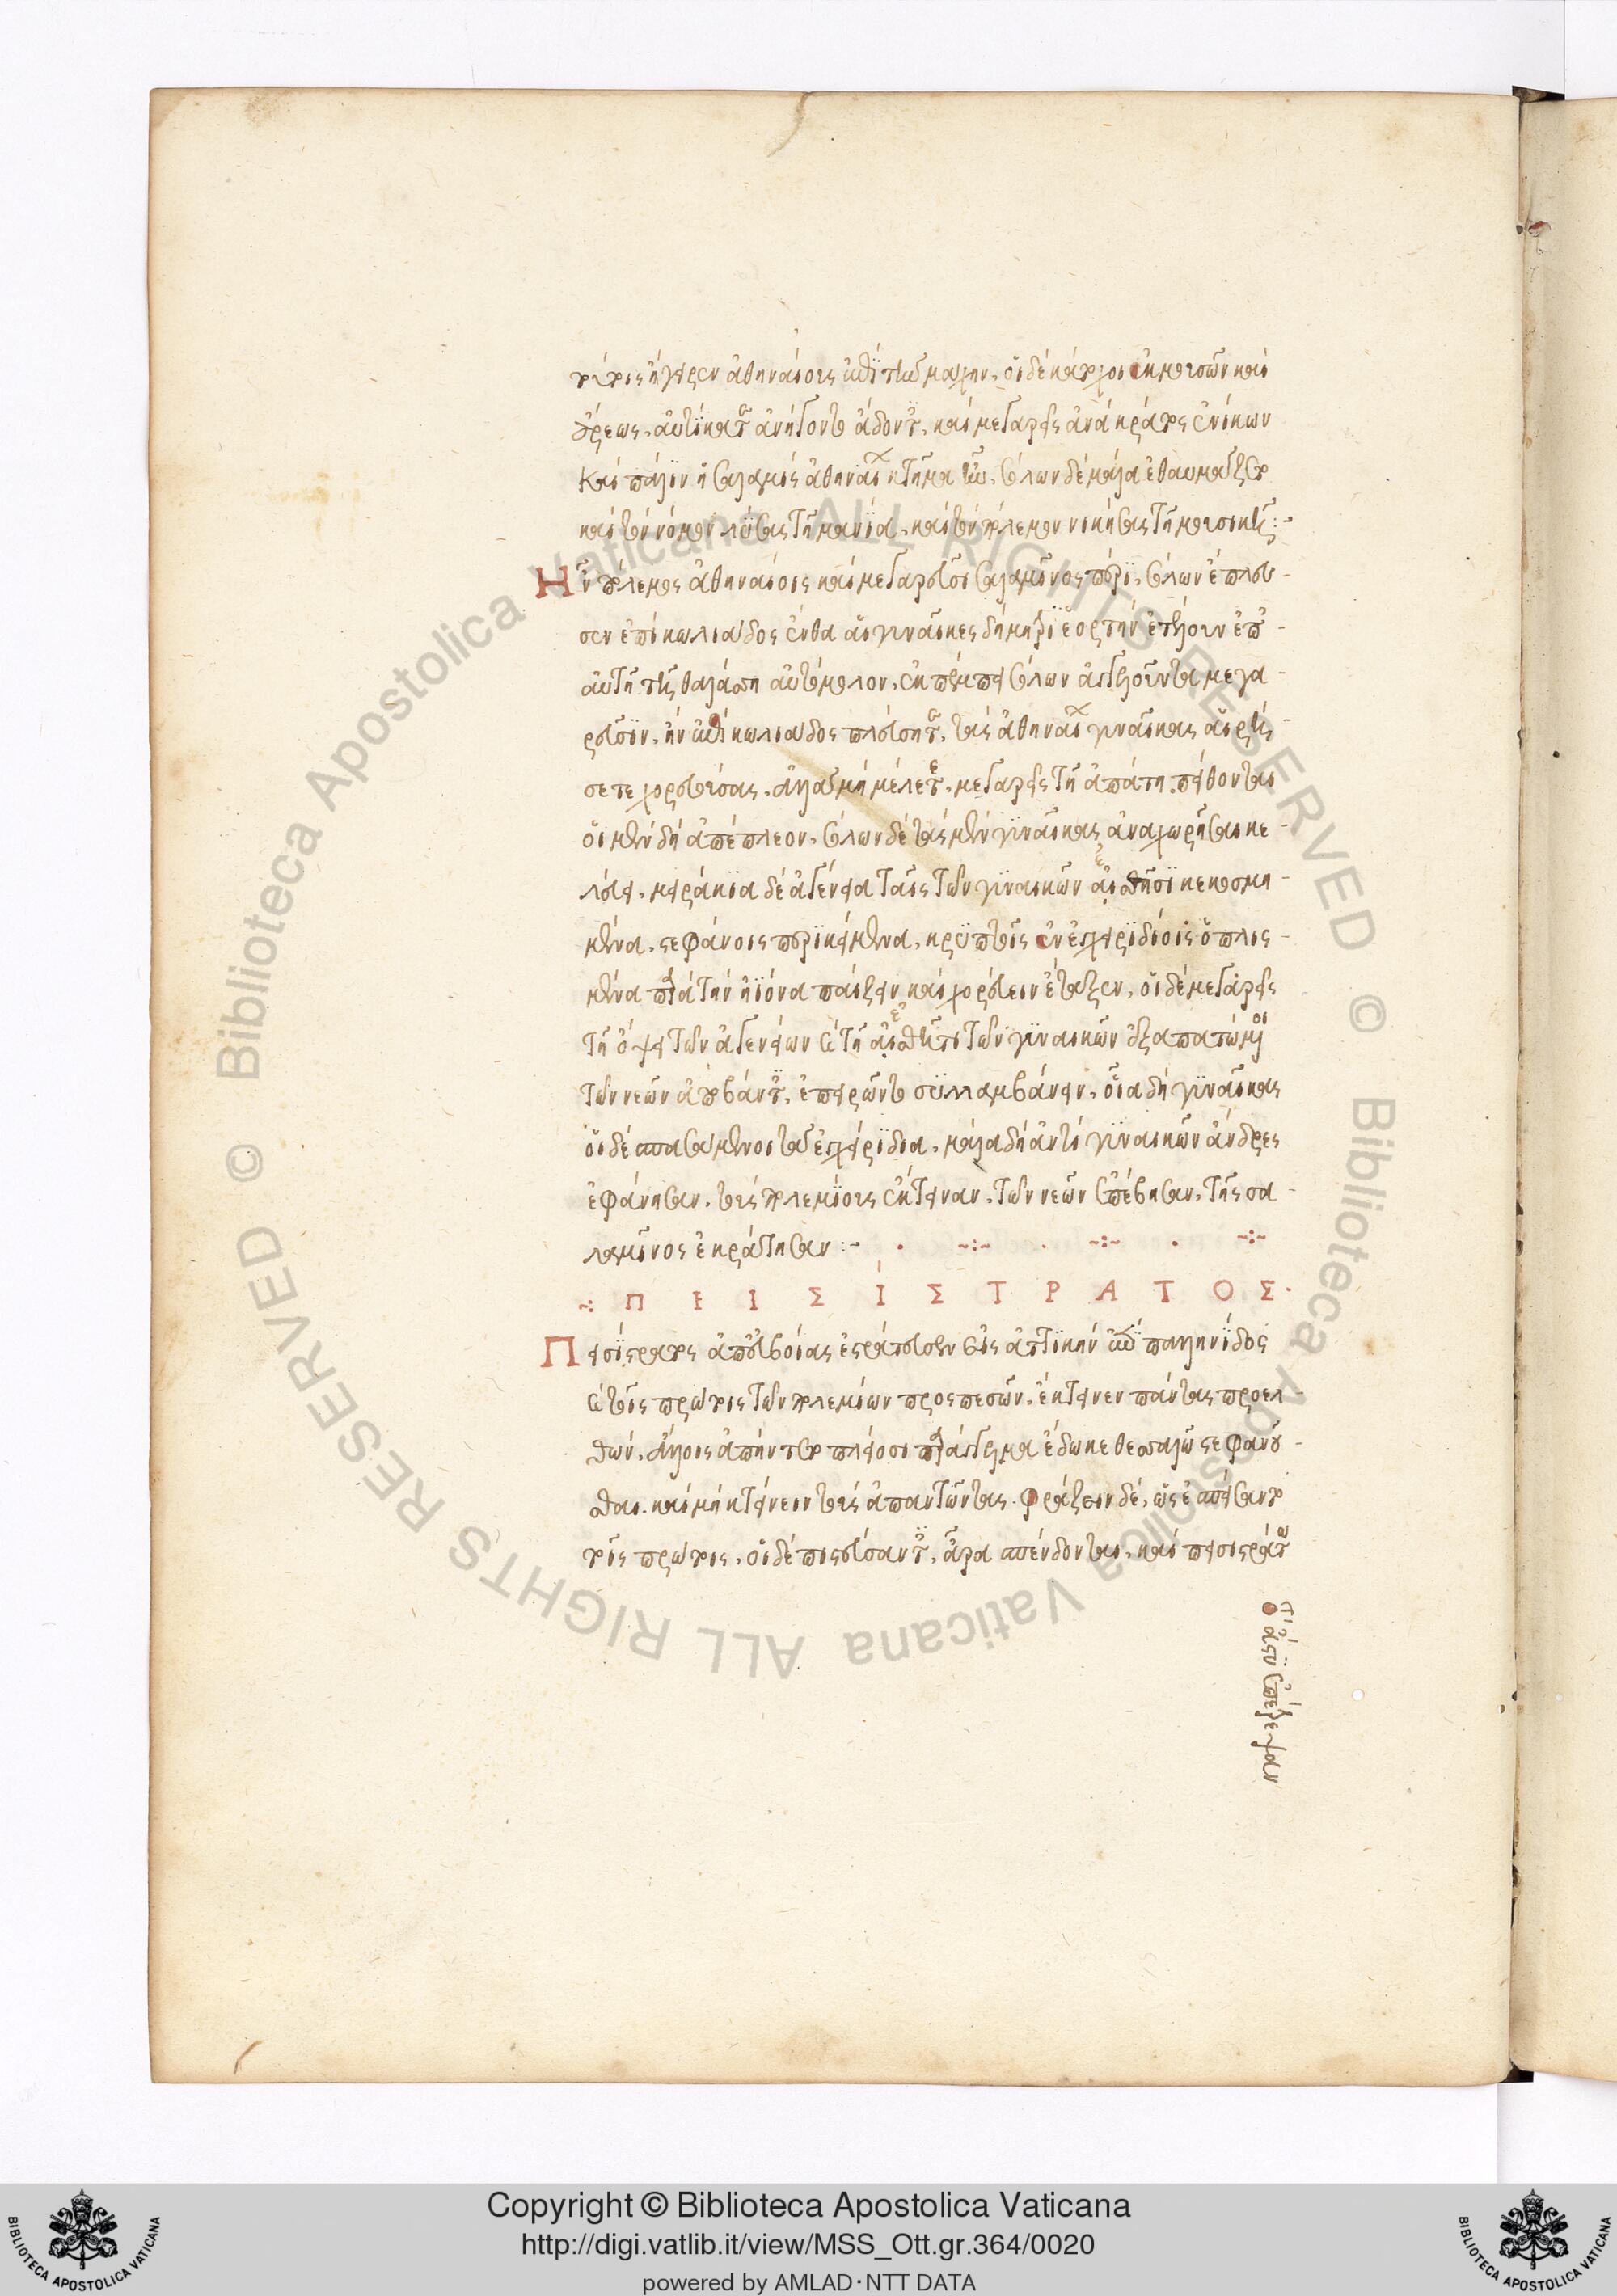 τούτοις ἤγειρεν ἀθηναίους ἐπὶ τὴν μάχην. οἱ δὲ κάτοχοι ἐκ μουσῶν καὶ
ἄρεως. αὐτίκα ἀνήγοντο ἄδοντες. καὶ μεγαρεῖς ἀνὰ κράτος ἐνίκων
καὶ πάλιν ἡ σαλαμὶς ἀθηναίων κτῆμα ἦν. σόλων δὲ μάλα ἐθαυμάζετο
καὶ τὸν νόμον λύσας τῇ μανία. καὶ τὸν πόλεμον νικήσας τῇ μουσικῇ:-
Ἦν πόλεμος ἀθηναίοις καὶ μεγαρεῦσι σαλαμῖνος πέρι. σόλων ἔπλευ-
σεν ἐπὶ κωλιάδος ἔνθα αἱ γυναῖκες δήμητρι ἑορτὴν ἐτέλουν ἐπ-
αὐτῇ τῇ θαλάσση αὐτόμολον. ἐκπέμπει σόλων ἀγγελοῦντα μεγα-
ρεῦσιν. ἢν ἐπὶ κωλιάδος πλεύσητε. τὰς ἀθηναίων γυναῖκας αἱρή-
σετε χορευούσας. ἀλλὰ μὴ μέλετε. μεγαρεῖς τῇ ἀπάτη πείθονται
οἱ μὲν δὴ ἀπέπλεον. σόλων δὲ τὰς μὲν γυναῖκας ἀναχωρῆσαι κε-
λεύει. μειράκια δὲ ἀγένεια ταῖς τῶν γυναικῶν ἐσθῆσι κεκοσμη-
μένα. στεφάνοις περικείμενα. κρυπτοῖς ἐν ἐγχειριδίοις ὁπλισ-
μένα παρὰ τὴν ἠϊόνα παίζειν καὶ χορεύειν ἔταξεν. οἱ δὲ μεγαρεῖς
τῇ ὄψει τῶν ἀγενείων καὶ τῇ ἐσθῆτι τῶν γυναικῶν ἐξαπατώμενοι
τῶν νεῶν ἀποβάντες. ἐπειρῶντο συλλαμβάνειν. οἷα δὴ γυναῖκας
οἱ δὲ σπασάμενοι τὰ ἐγχειρίδια. μάλα δὴ ἀντὶ γυναικῶν ἄνδρες
ἐφάνησαν. τοὺς πολεμίους ἔκτειναν. τῶν νεῶν ἐπέβησαν. τῆς σα-
λαμῖνος ἐκράτησαν:-
ΠΕΙΣΊΣΤΡΑΤΟΣ.
Πεισίστρατος ἀπ' εὐβοίας ἐστράτευσεν εἰς ἀττικὴν ἐπὶ παλληνίδος
καὶ τοῖς πρώτοις τῶν πολεμίων προσπεσῶν. ἔκτεινεν πάντας προελ-
θών. ἄλλοις ἀπήντετο πλείοσι παράγγελμα ἔδωκε θεσσαλῶ στεφανοῦ-
σθαι. καὶ μὴ κτείνειν τοὺς ἀπαντῶντας. φράζειν δὲ. ὡς ἐσπείσαντο
τοῖς πρώτοις. οἱ δὲ πιστεύσαντες. ἄρα σπένδονται. καὶ πεισιστράτω
τὸ ἄστυ ἐπέτρεψαν